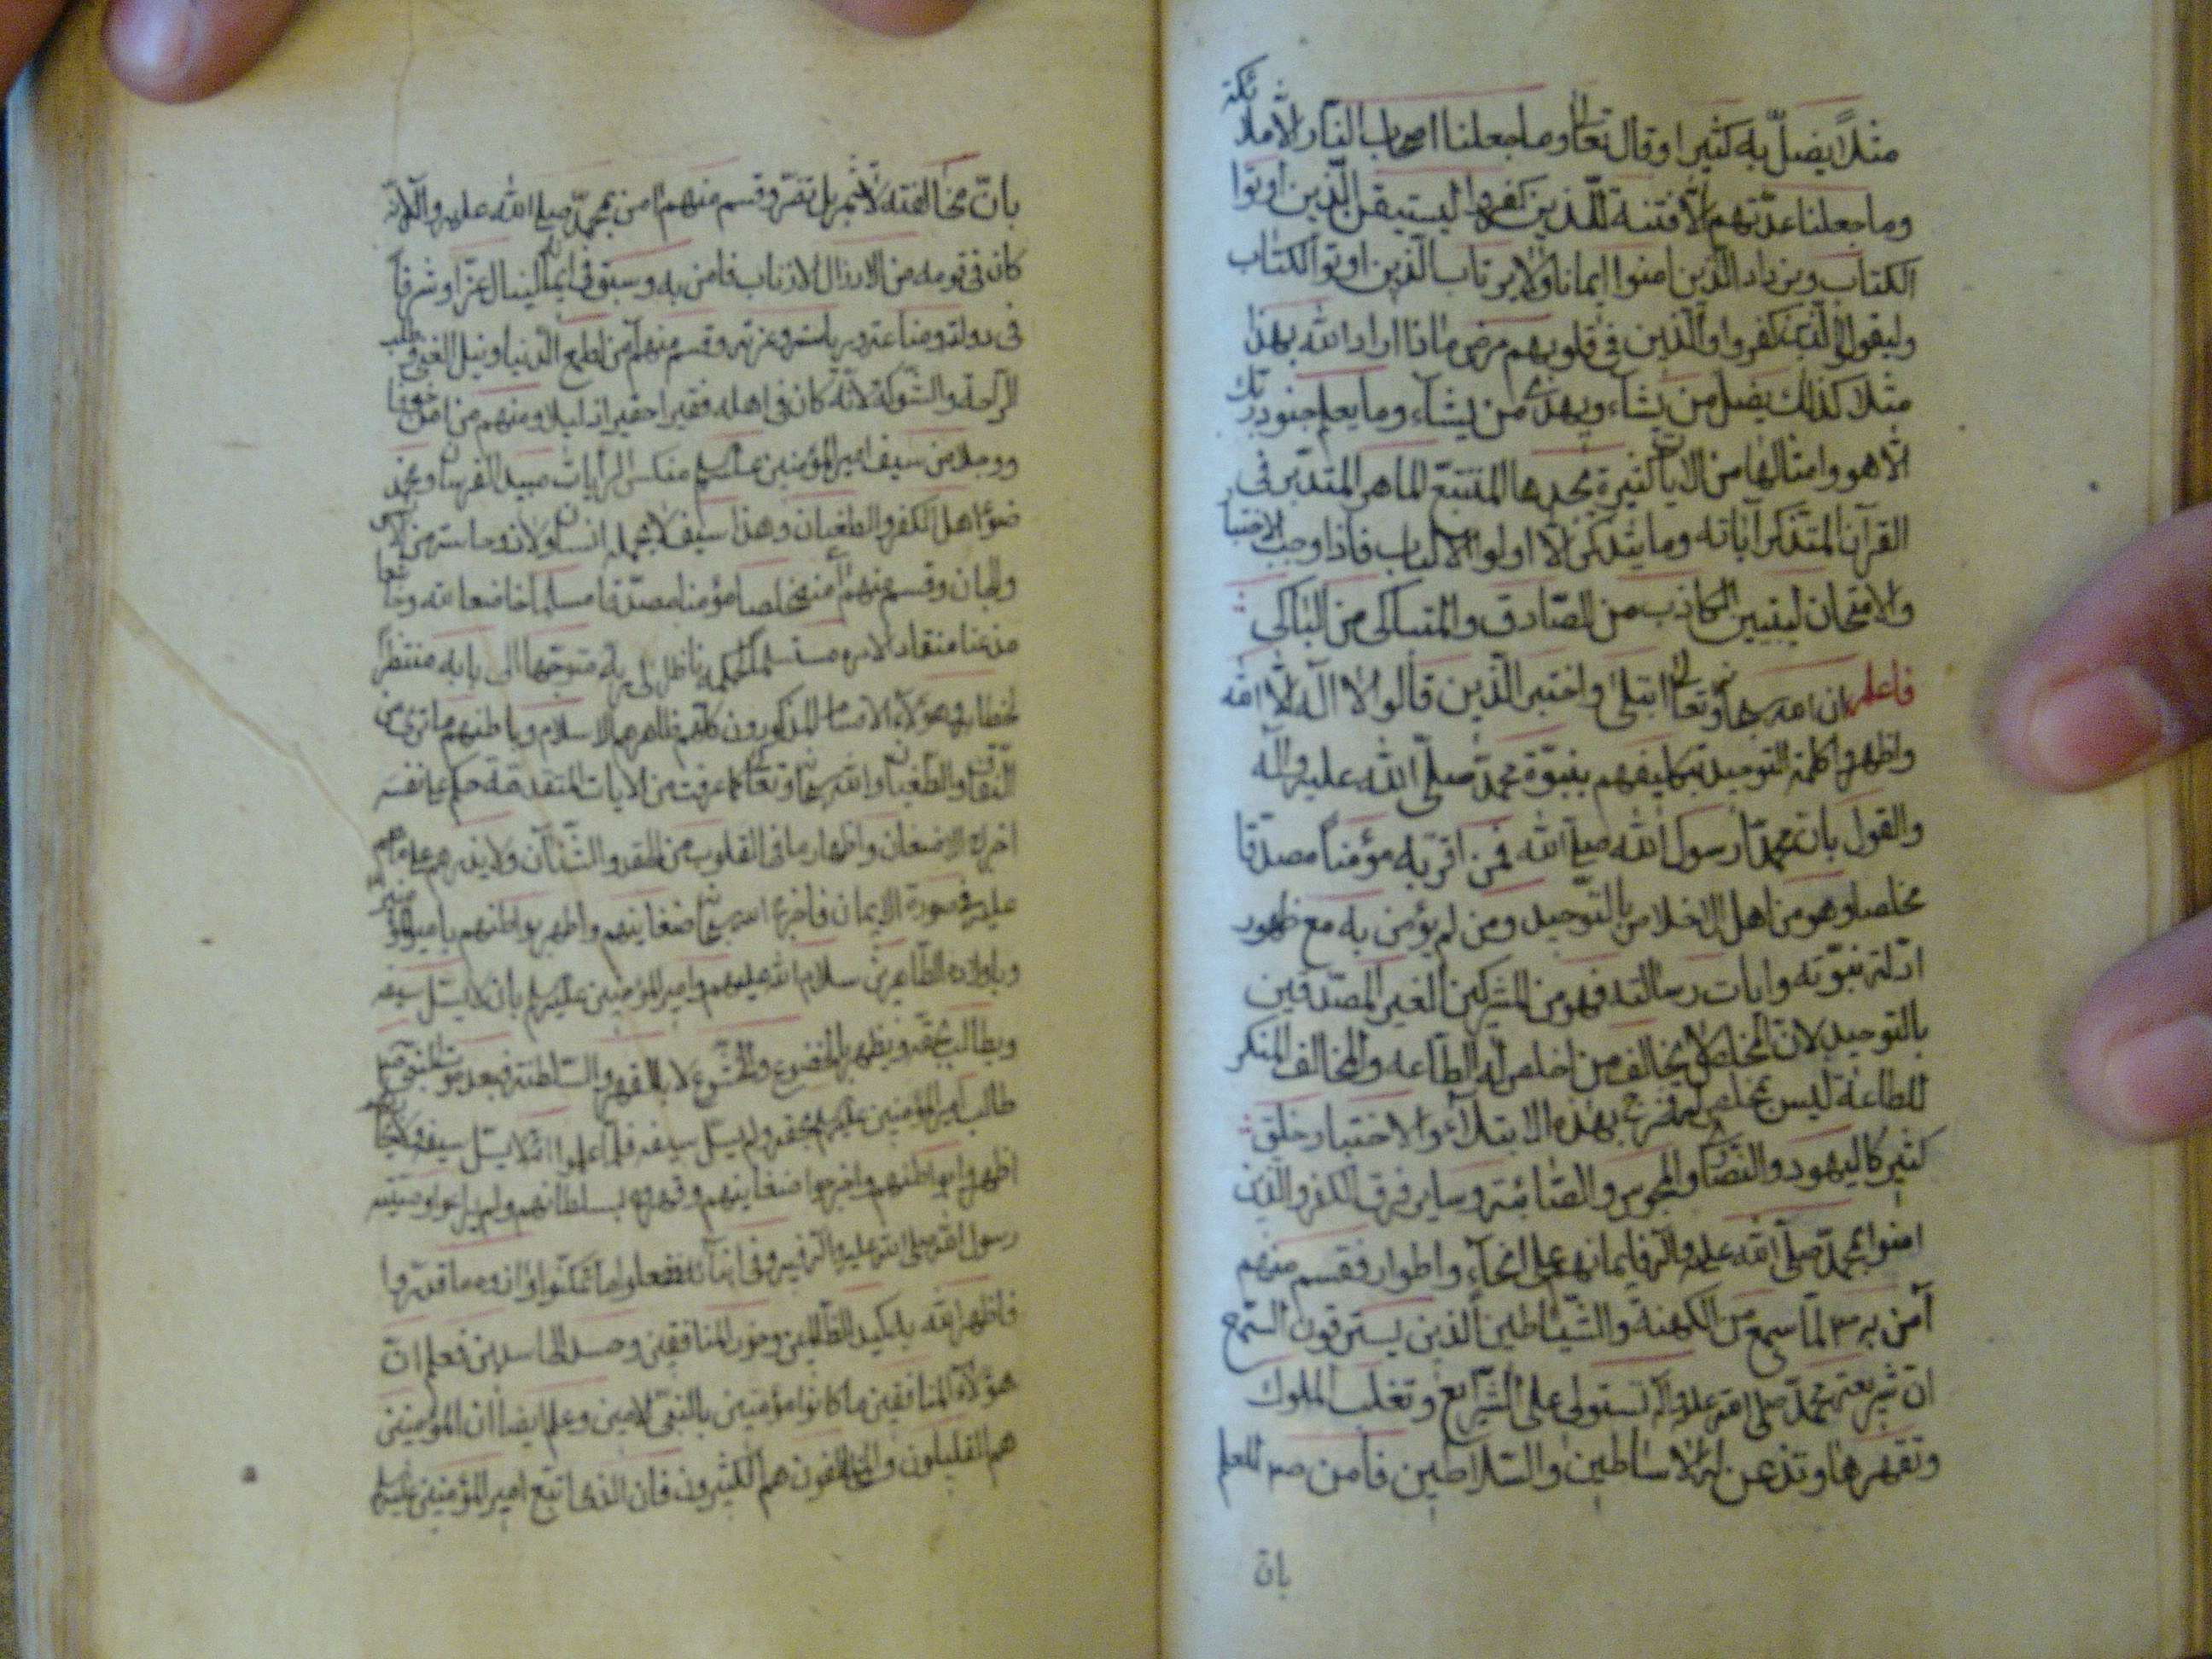 مثلاً يضلّ به كثيرا وقال تعالى وما جعلنا اصحاب النّار الّا ملائكة
وما جعلنا عدّتهم الّا فتنة للّذين كفروا ليستيقن الّذين اوتوا
الكتاب ويزداد الّذين امنوا ايمانا ولا يرتاب الّذين اوتوا الكتاب
وليقول الّذين كفروا والّذين في قلوبهم مرض ماذا اراد الله بهذا
مثلا كذلك يضل من يشاء ويهدى من يشاء وما يعلم جنود ربّك
الّا هو وامثالها من الايات كثيرة يجدها المتتبّع الماهر المتدبّر في
القرآن المتذكر آياته وما يتذكّر الّا اولوا الالباب فاذا وجب الاختبار
والامتحان ليتبين الكاذب من الصّادق والمتباكى من الباكى
فاعلم ان الله سبحانه وتعالى ابتلى واختبر الّذين قالوا لا اله الّا الله
واظهروا كلمة التوحيد بتكليفهم بنبوّة محمّد صلّى الله عليه وآله
والقول بانّ محمّدا رسول الله صلى الله فمن اقرّ به مؤمنا مصدّقا
مخلصا وهو من اهل الاخلاص بالتّوحيد ومن لم يؤمن به مع ظهور
ادلّة نبوّته وايات رسالته فهو من المشركين الغير المصدّقين
بالتوحيد لانّ المخلص لا يخالف من اخلص له الطّاعه والمخالف المنكر
للطاعة ليس بمخلص فخرج بهذه الابتلاء والاختبار خلق
كثير كاليهود والنّصارى والمجوس والصّابئة وساير فرق الكفر والذين
امنوا بمحمّد صلّى الله عليه وآله فايمانهم على انحاء واطوار فقسم منهم
آمن به ص لمّا سمع من الكهنة والشّياطين الذين يسترقون السّمع
انّ شريعة محمّد صلى الله عليه وآله تستولى على الشّرايع وتغلب الملوك
وتقهرها وتذعن له الاساطين والسّلاطين فآمن ص للعلم
بانّ
بانّ مخالفته لا تثمر بل تضرّ وقسم منهم امن بمحمّد صلى الله عليه وآله لانّه
كان في قومه من الارذال الاذناب فامن به وسبق في ايمانه لينال عزّا وشرفاً
في دولته ومناعته ورياسته وعزته وقسم منهم آمن لطمع الدّنيا ونيل الغنى وطلب
الرّاحة والشّوكة لانّه كان في اهله فقيرا حقيرا ذليلا ومنهم من امن خوفا
ووجلا من سيف امير المؤمنين عليه السلم منكس الرايات مبيد الفرسان ومخمد
ضوء اهل الكفر والطغيان وهذا سيف لا يحمله انسان ولا نوحاسته من الانس
والجان وقسم منهم آمن مخلصا مؤمنا مصدّقا مسلما خاضعا لله وخاشعا
مذعنا منقادا لامره مستسلما لحكمه ناظرا الى ربه متوجّها الى بابه منتظراً
لخطابه وهؤلاء الاقسام المذكورون كلّهم ظاهرهم الاسلام وباطنهم ما ترى من
النّفاق والطّغيان والله سبحانه وتعالى كما عرفت من الايات المتقدمة حكم على نفسه
اخراج الاضغان واظهار ما في القلوب من الحقد والشّنآن ولا يذرهم على ما هم
عليه في صورة الايمان فاخرج الله سبحانه ضغاينهم واظهر بواطنهم بامير المؤمنين
وباولاده الطّاهرين سلام الله عليهم وامير المؤمنين عليه السلم بان لا يسلّ سيفه
ويطالب بحقّه ويظهر بالخضوع والخشوع لا بالقهر والسّلطنة فبعد موت النّبى صلى
طالب امير المؤمنين عليه السلم بحقه ولم يسلّ سيفه فلمّا علموا انّه لا يسلّ سيفه
اظهروا بواطنهم واخرجوا ضغاينهم وقهروه بسلطانهم ولم يراعوا وصيّة
رسول الله صلى الله عليه وآله فيه وفي ابنائه ففعلوا ما تمكنّوا واذوه ما قدروا
فاظهر الله به كيد الظّالمين وجور المنافقين وحسد الحاسدين فعلم انّ
هؤلاء المنافقين ما كانوا مؤمنين بالنّبى الامين وعلم ايضا ان المؤمنين
هم القليلون والمخالفون هم الكثيرون فان الذى اتبع امير المؤمنين عليه السلم